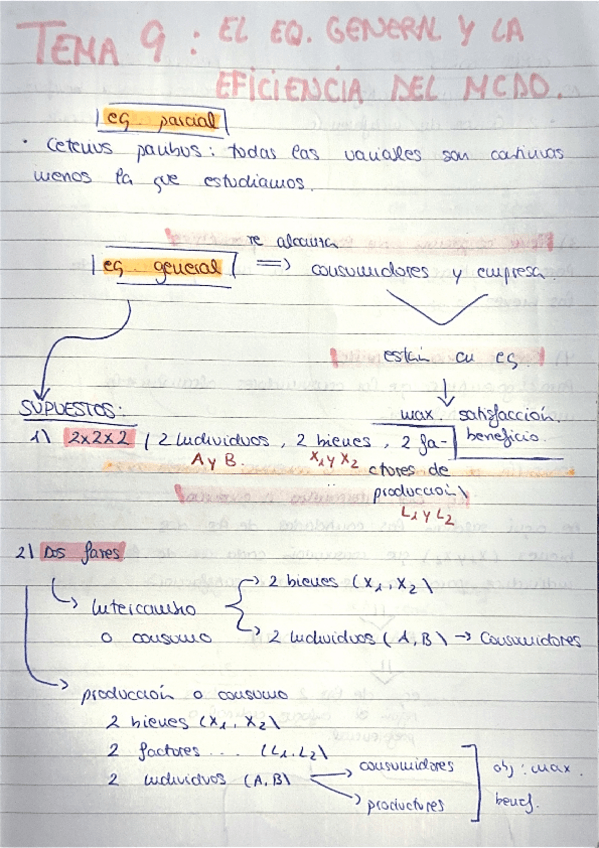 TEMA 9 : EL EQ. GENERAL Y LA
EFICIENCIA DEL MCDO.
eq. parcial
• Ceterius paribus : todas las variables son continuas
menos la que estudiamos.
se alcanza
eq. general => consumidores y empresa.
están en eq.
SUPUESTOS:
max. satisfacción.
beneficio.
1) 2x2x2 ( 2 individuos , 2 bienes , 2 fa-
A y B. X1 y X2
ctores de
producción)
L1 y L2
2) Dos fases
Intercambio
o consumo
2 bienes (X1, X2)
2 individuos (A, B) → Consumidores
producción o consumo
2 bienes (X1, X2)
2 factores ... (L1, L2)
2 individuos (A, B)
consumidores
productores
obj: max.
benef.